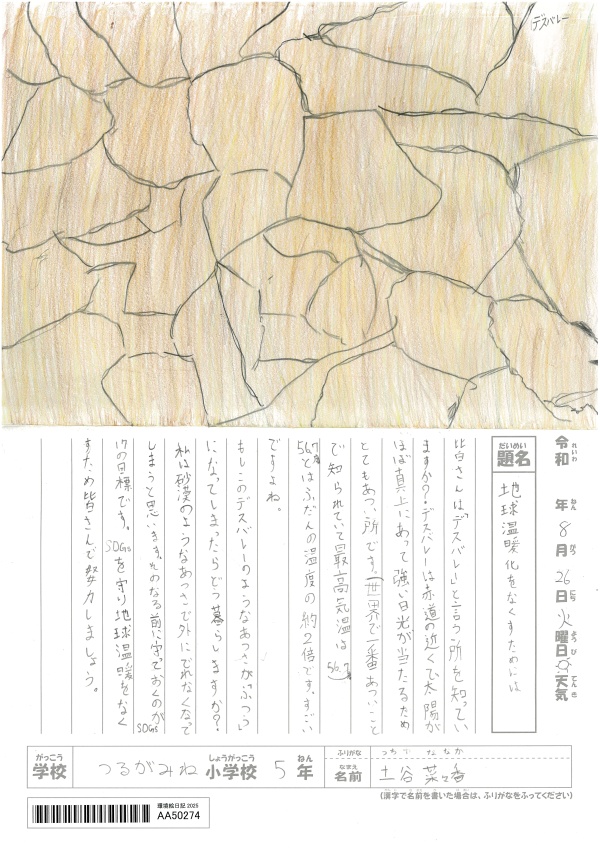 デスバレー
令和 年 8月 26日 火曜日 天気
れいわ ねん がつ にち ようび てんき
題名 地球温暖化をなくすためには
だいめい
皆さんは「デスバレ」と言う所を知ってい
ますか？デスバレーは赤道の近くで太陽が
ほぼ真上にあって強い日光が当たるため
とてもあつい所です。(世界で一番あついこと
で知られていて最高気温は56.7℃
56.7℃とはふだんの温度の約2倍です。すごい
ですよね。
もしこのデスバレーのようなあつさがふつう
になってしまったらどう暮らしますか？
私は砂漠のようなあつさで外にでれなくなって
しまうと思います。そのなる前に守っておくのがSDGs
17の目標です。SDGsを守り地球温暖をなく
すため皆さんで努力しましょう。
がっこう しょうがっこう ねん
学校 つるがみね 小学校 5年
ふりがな つちや ななか
なまえ
名前 土谷 菜々香
(漢字で名前を書いた場合は、ふりがなをふってください)
環境絵日記 2025
AA50274